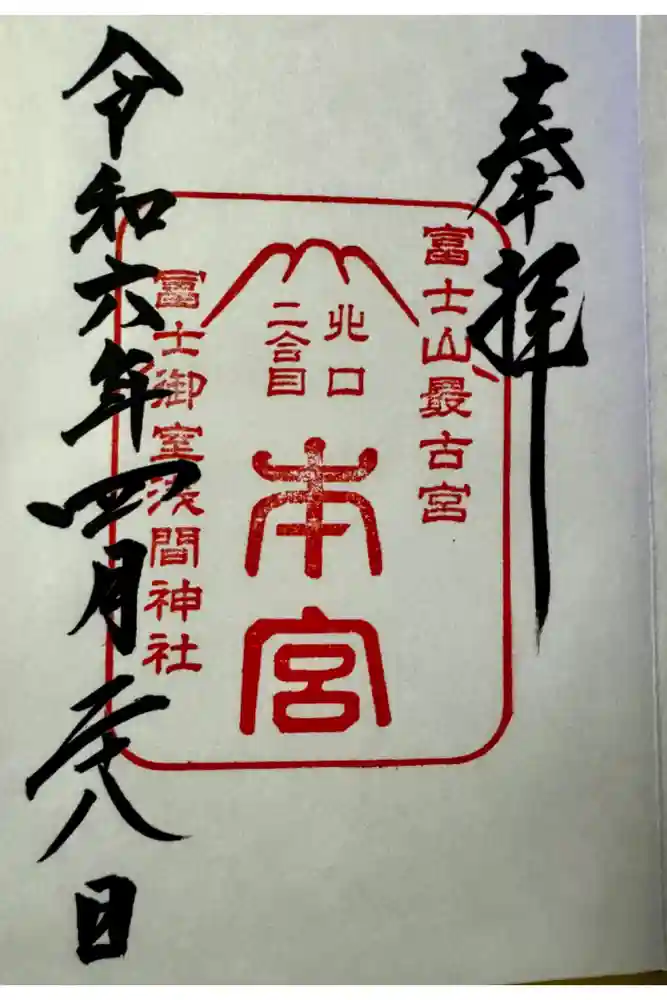 奉拝
富士山最古宮
北口
二合目
本宮
富士御室浅間神社
令和六年四月二十八日